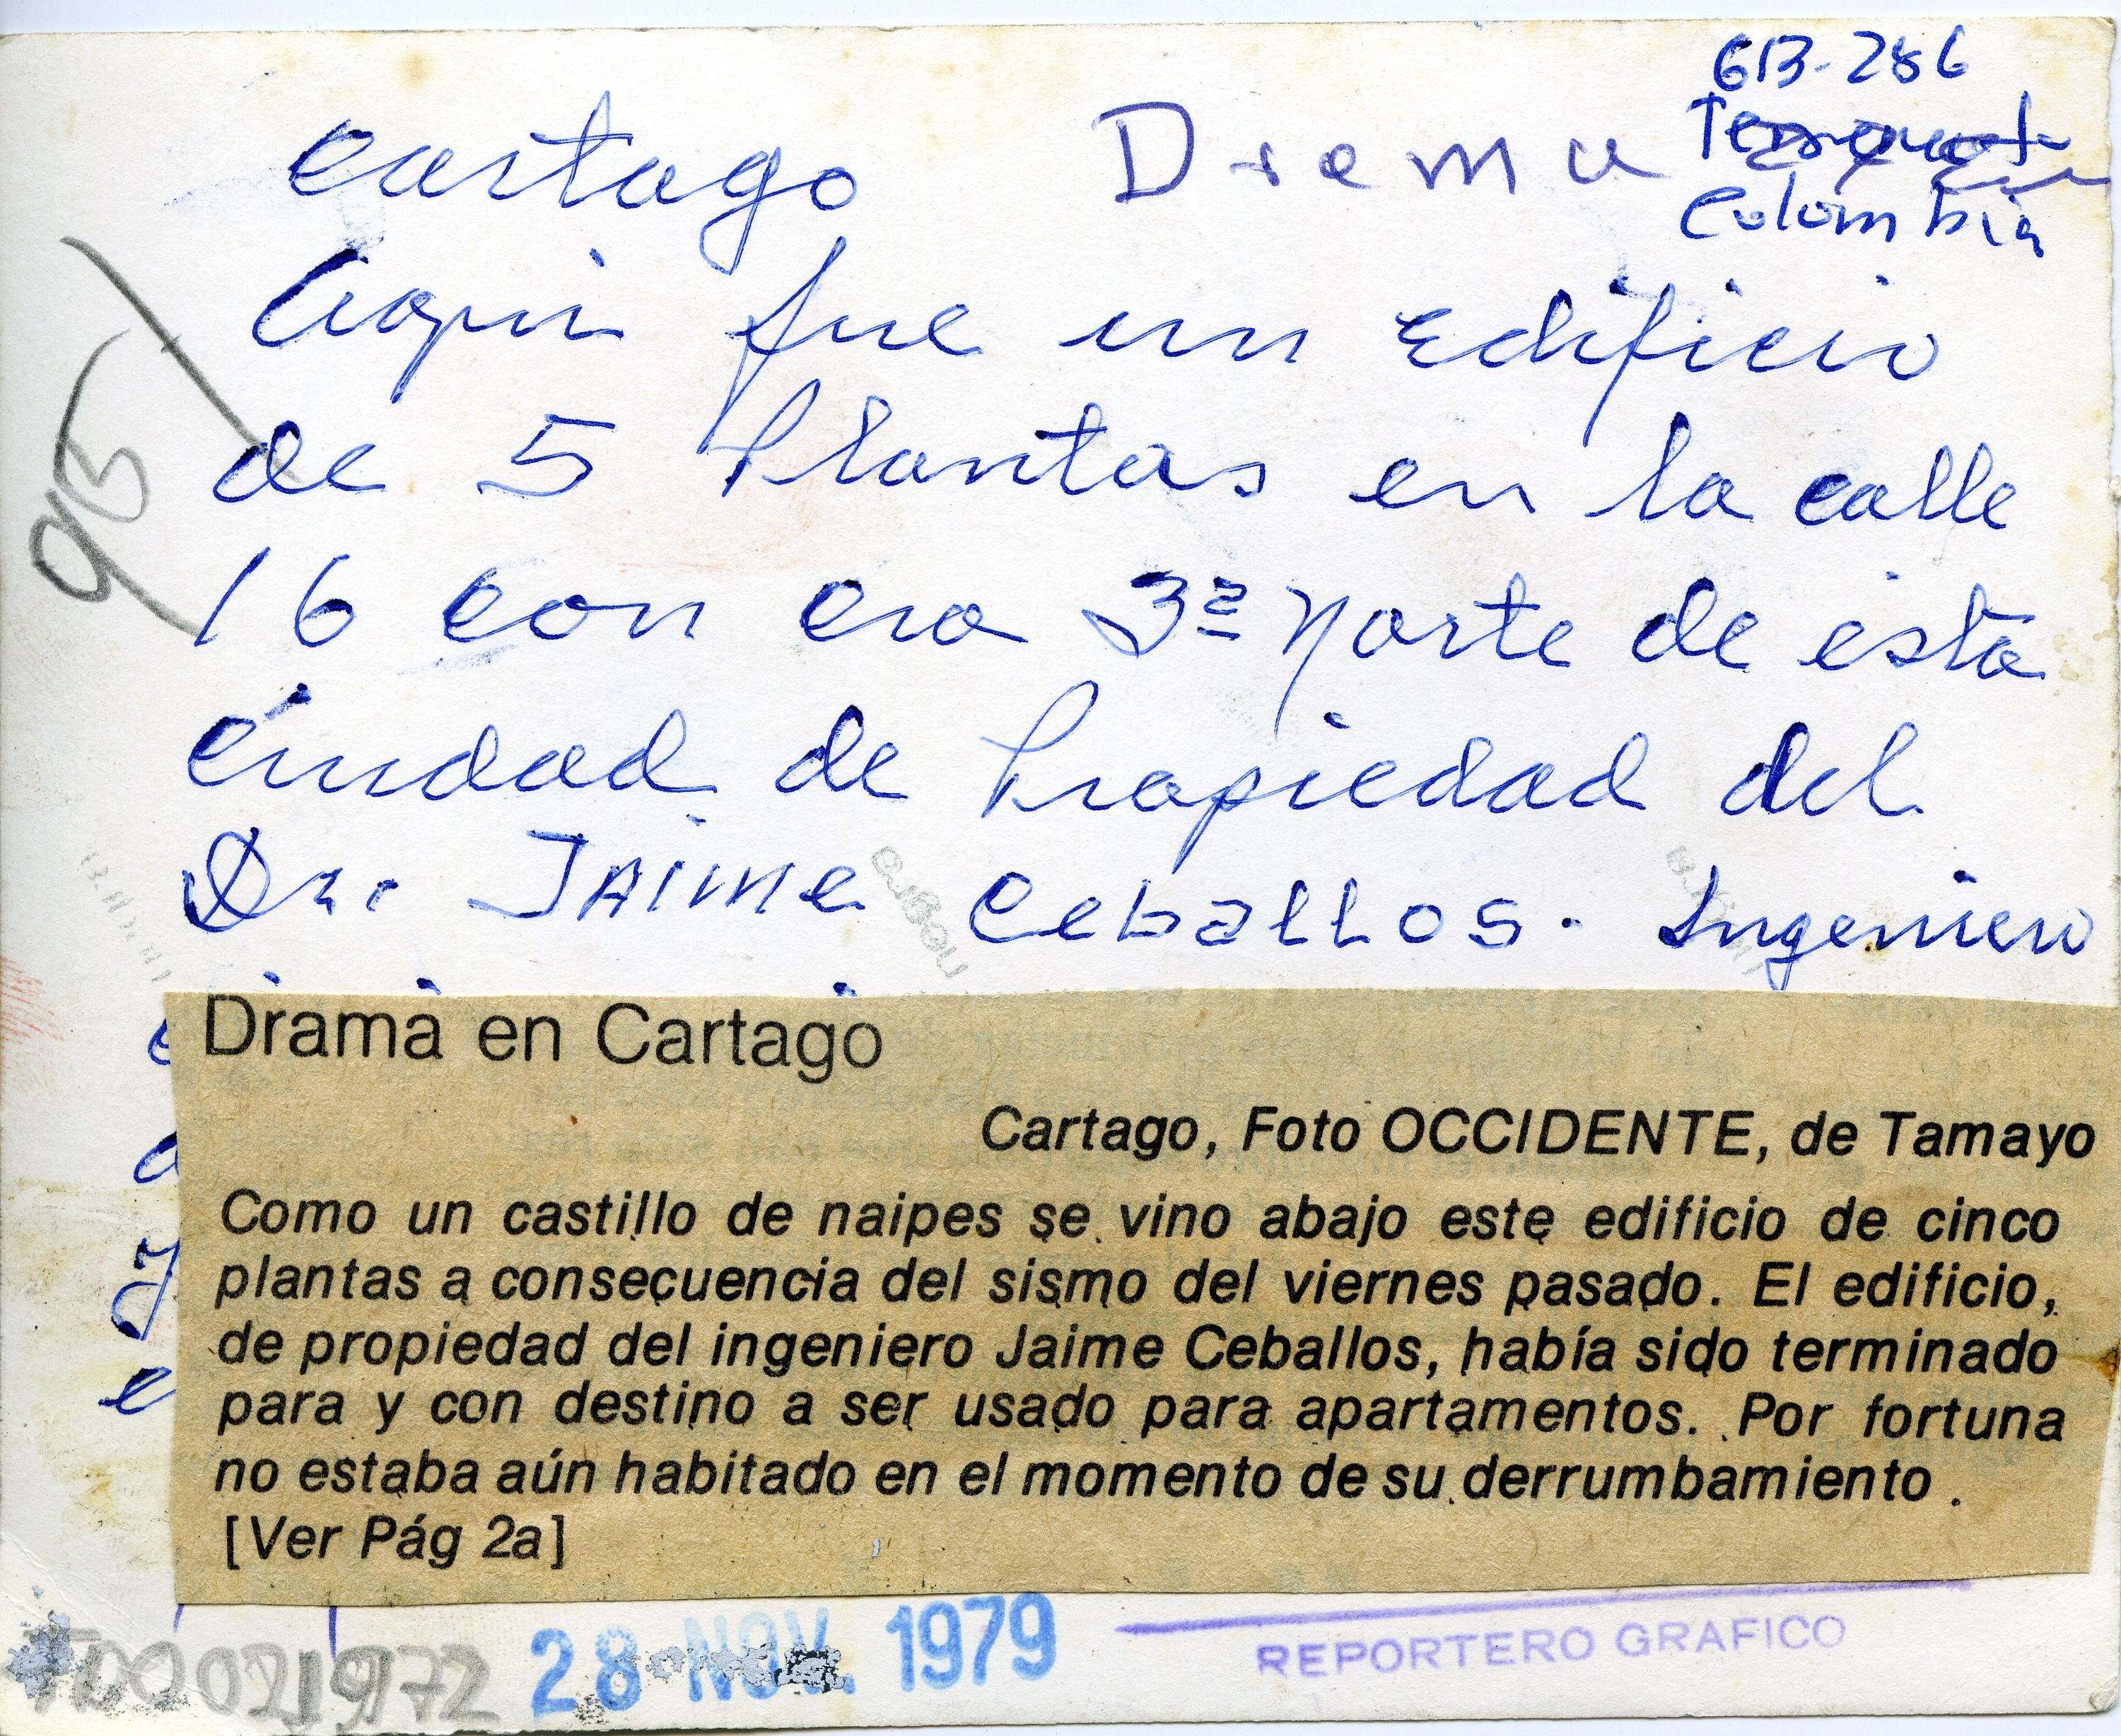 613-286
Cartago Drama
Terremoto
Colombia
Aqui fue un Edificio
de 5 Plantas en la calle
16 con cra 3ª Norte de esta
Ciudad de Propiedad del
Dr. JAime CebaLLOS. Ingeniero
Drama en Cartago
Cartago, Foto OCCIDENTE, de Tamayo
Como un castillo de naipes se vino abajo este edificio de cinco
plantas a consecuencia del sismo del viernes pasado. El edificio,
de propiedad del ingeniero Jaime Ceballos, había sido terminado
para y con destino a ser usado para apartamentos. Por fortuna
no estaba aún habitado en el momento de su derrumbamiento.
[Ver Pág 2a]
28 NOV. 1979
REPORTERO GRAFICO